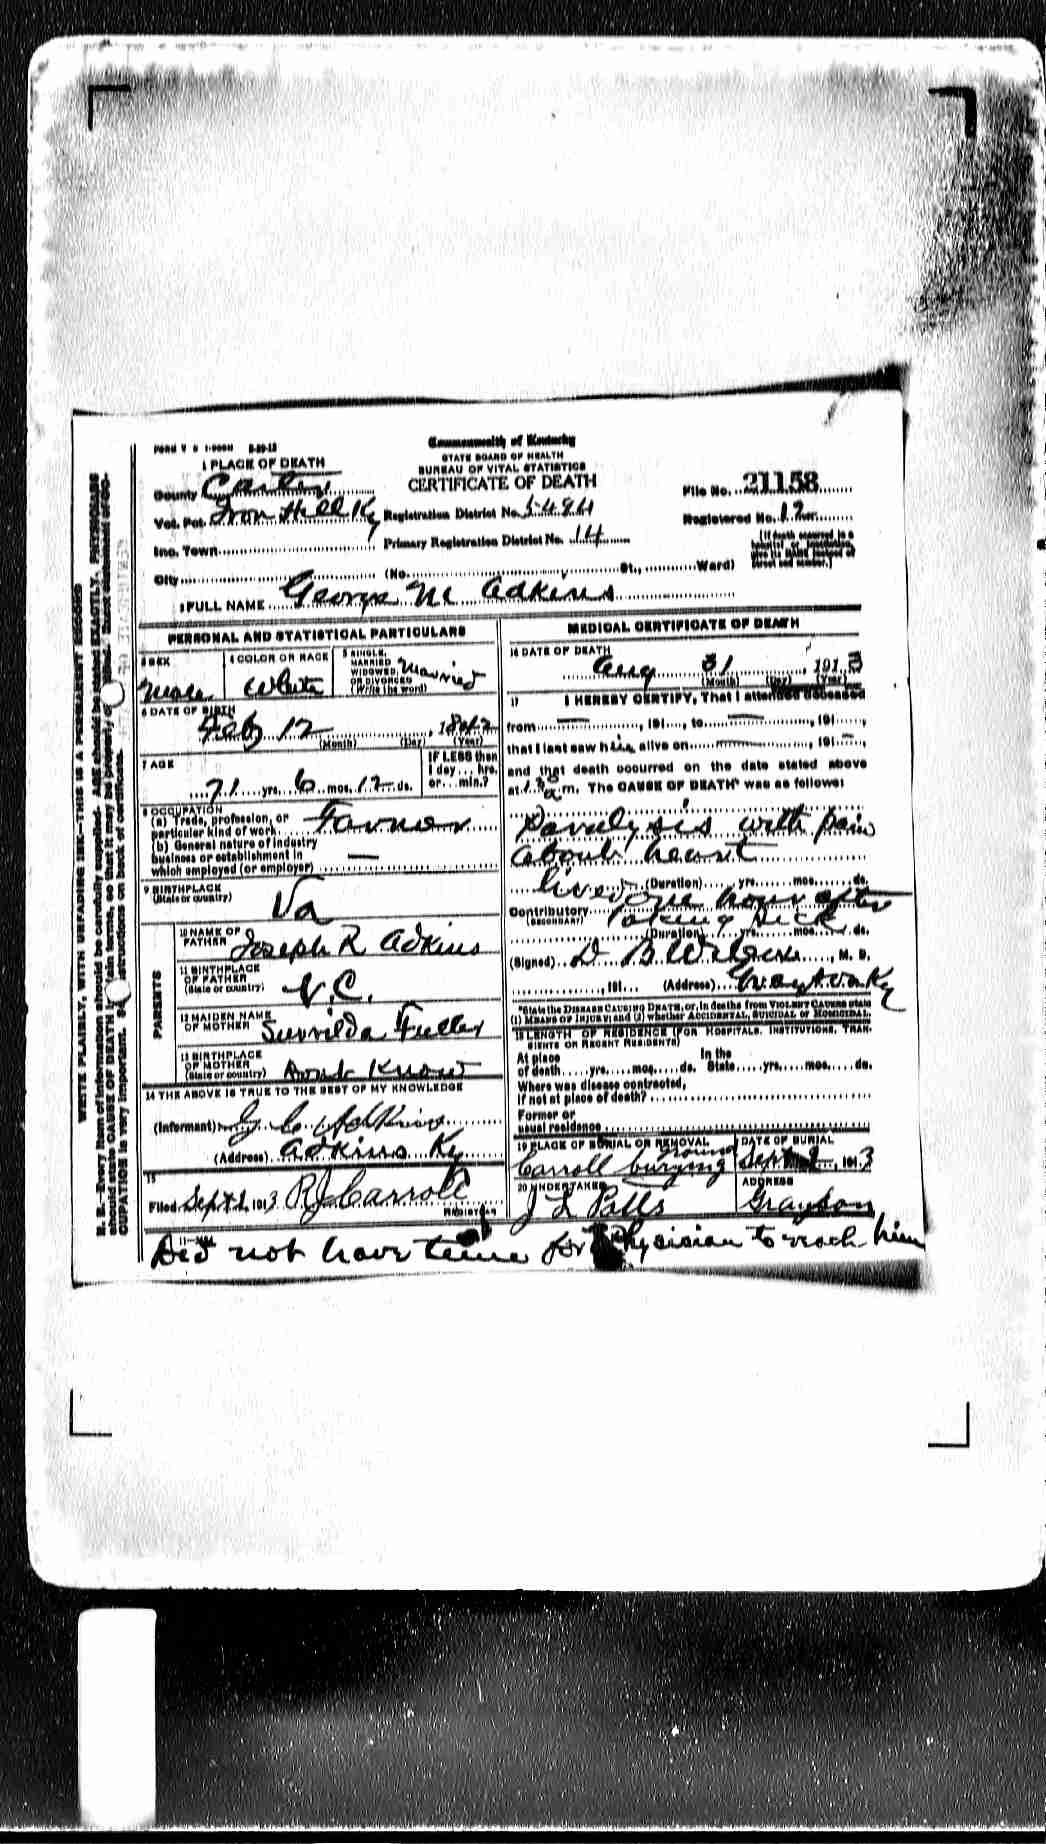 FORM V S 1-500M 8-20-12
Commonwealth of Kentucky
STATE BOARD OF HEALTH
BUREAU OF VITAL STATISTICS
CERTIFICATE OF DEATH
1 PLACE OF DEATH
County Carter
Vot. Pct. Iron Hill Ky Registration District No. 5494
Inc. Town Primary Registration District No. 14
City (No. St., Ward)
File No. 21158
Registered No. 12
[If death occurred in a hospital or institution, give its NAME instead of street and number.]
2 FULL NAME George M Adkins
PERSONAL AND STATISTICAL PARTICULARS
3 SEX Male
4 COLOR OR RACE White
5 SINGLE, MARRIED WIDOWED, OR DIVORCED (Write the word) Married
6 DATE OF BIRTH Feb 12, 1842
(Month) (Day) (Year)
7 AGE 71 yrs. 6 mos. 12 ds.
IF LESS than 1 day... hrs. or... min.?
8 OCCUPATION
(a) Trade, profession, or particular kind of work Farmer
(b) General nature of industry business or establishment in which employed (or employer) —
9 BIRTHPLACE (State or country) Va
PARENTS
10 NAME OF FATHER Joseph R Adkins
11 BIRTHPLACE OF FATHER (State or country) N.C.
12 MAIDEN NAME OF MOTHER Fuller
13 BIRTHPLACE OF MOTHER (State or country) Dont Know
14 THE ABOVE IS TRUE TO THE BEST OF MY KNOWLEDGE
(Informant) G. C. Adkins
(Address) Adkins Ky
15
Filed Sept 1, 1913 RJ Carroll
REGISTRAR
MEDICAL CERTIFICATE OF DEATH
16 DATE OF DEATH Aug 31, 1913
(Month) (Day) (Year)
17 I HEREBY CERTIFY, That I attended deceased
from —, 191..., to —, 191...,
that I last saw him alive on —, 191—,
and that death occurred on the date stated above
at m. The CAUSE OF DEATH* was as follows:
Paralysis with pain
about heart
lived one hour after
(Duration) yrs. mos. ds.
Contributory taking Sick
(SECONDARY)
(Duration) yrs. mos. ds.
(Signed) D B Wilcox, M. D.
, 191... (Address) Grayson Ky
*State the DISEASE CAUSING DEATH, or, in deaths from VIOLENT CAUSES state
(1) MEANS OF INJURY; and (2) whether ACCIDENTAL, SUICIDAL or HOMICIDAL.
18 LENGTH OF RESIDENCE (FOR HOSPITALS, INSTITUTIONS, TRANSIENTS OR RECENT RESIDENTS)
At place of death yrs. mos. ds. In the State yrs. mos. ds.
Where was disease contracted,
if not at place of death?
Former or
usual residence
19 PLACE OF BURIAL OR REMOVAL Carroll burying ground
DATE OF BURIAL Sept, 1913
20 UNDERTAKER J L Patts
ADDRESS Grayson
Did not have time for Physician to reach him
WRITE PLAINLY, WITH UNFADING INK—THIS IS A PERMANENT RECORD
N. B.—Every item of information should be carefully supplied. AGE should be stated EXACTLY. PHYSICIANS
should state CAUSE OF DEATH in plain terms, so that it may be properly classified. Exact statement of OC-
CUPATION is very important. See instructions on back of certificate.